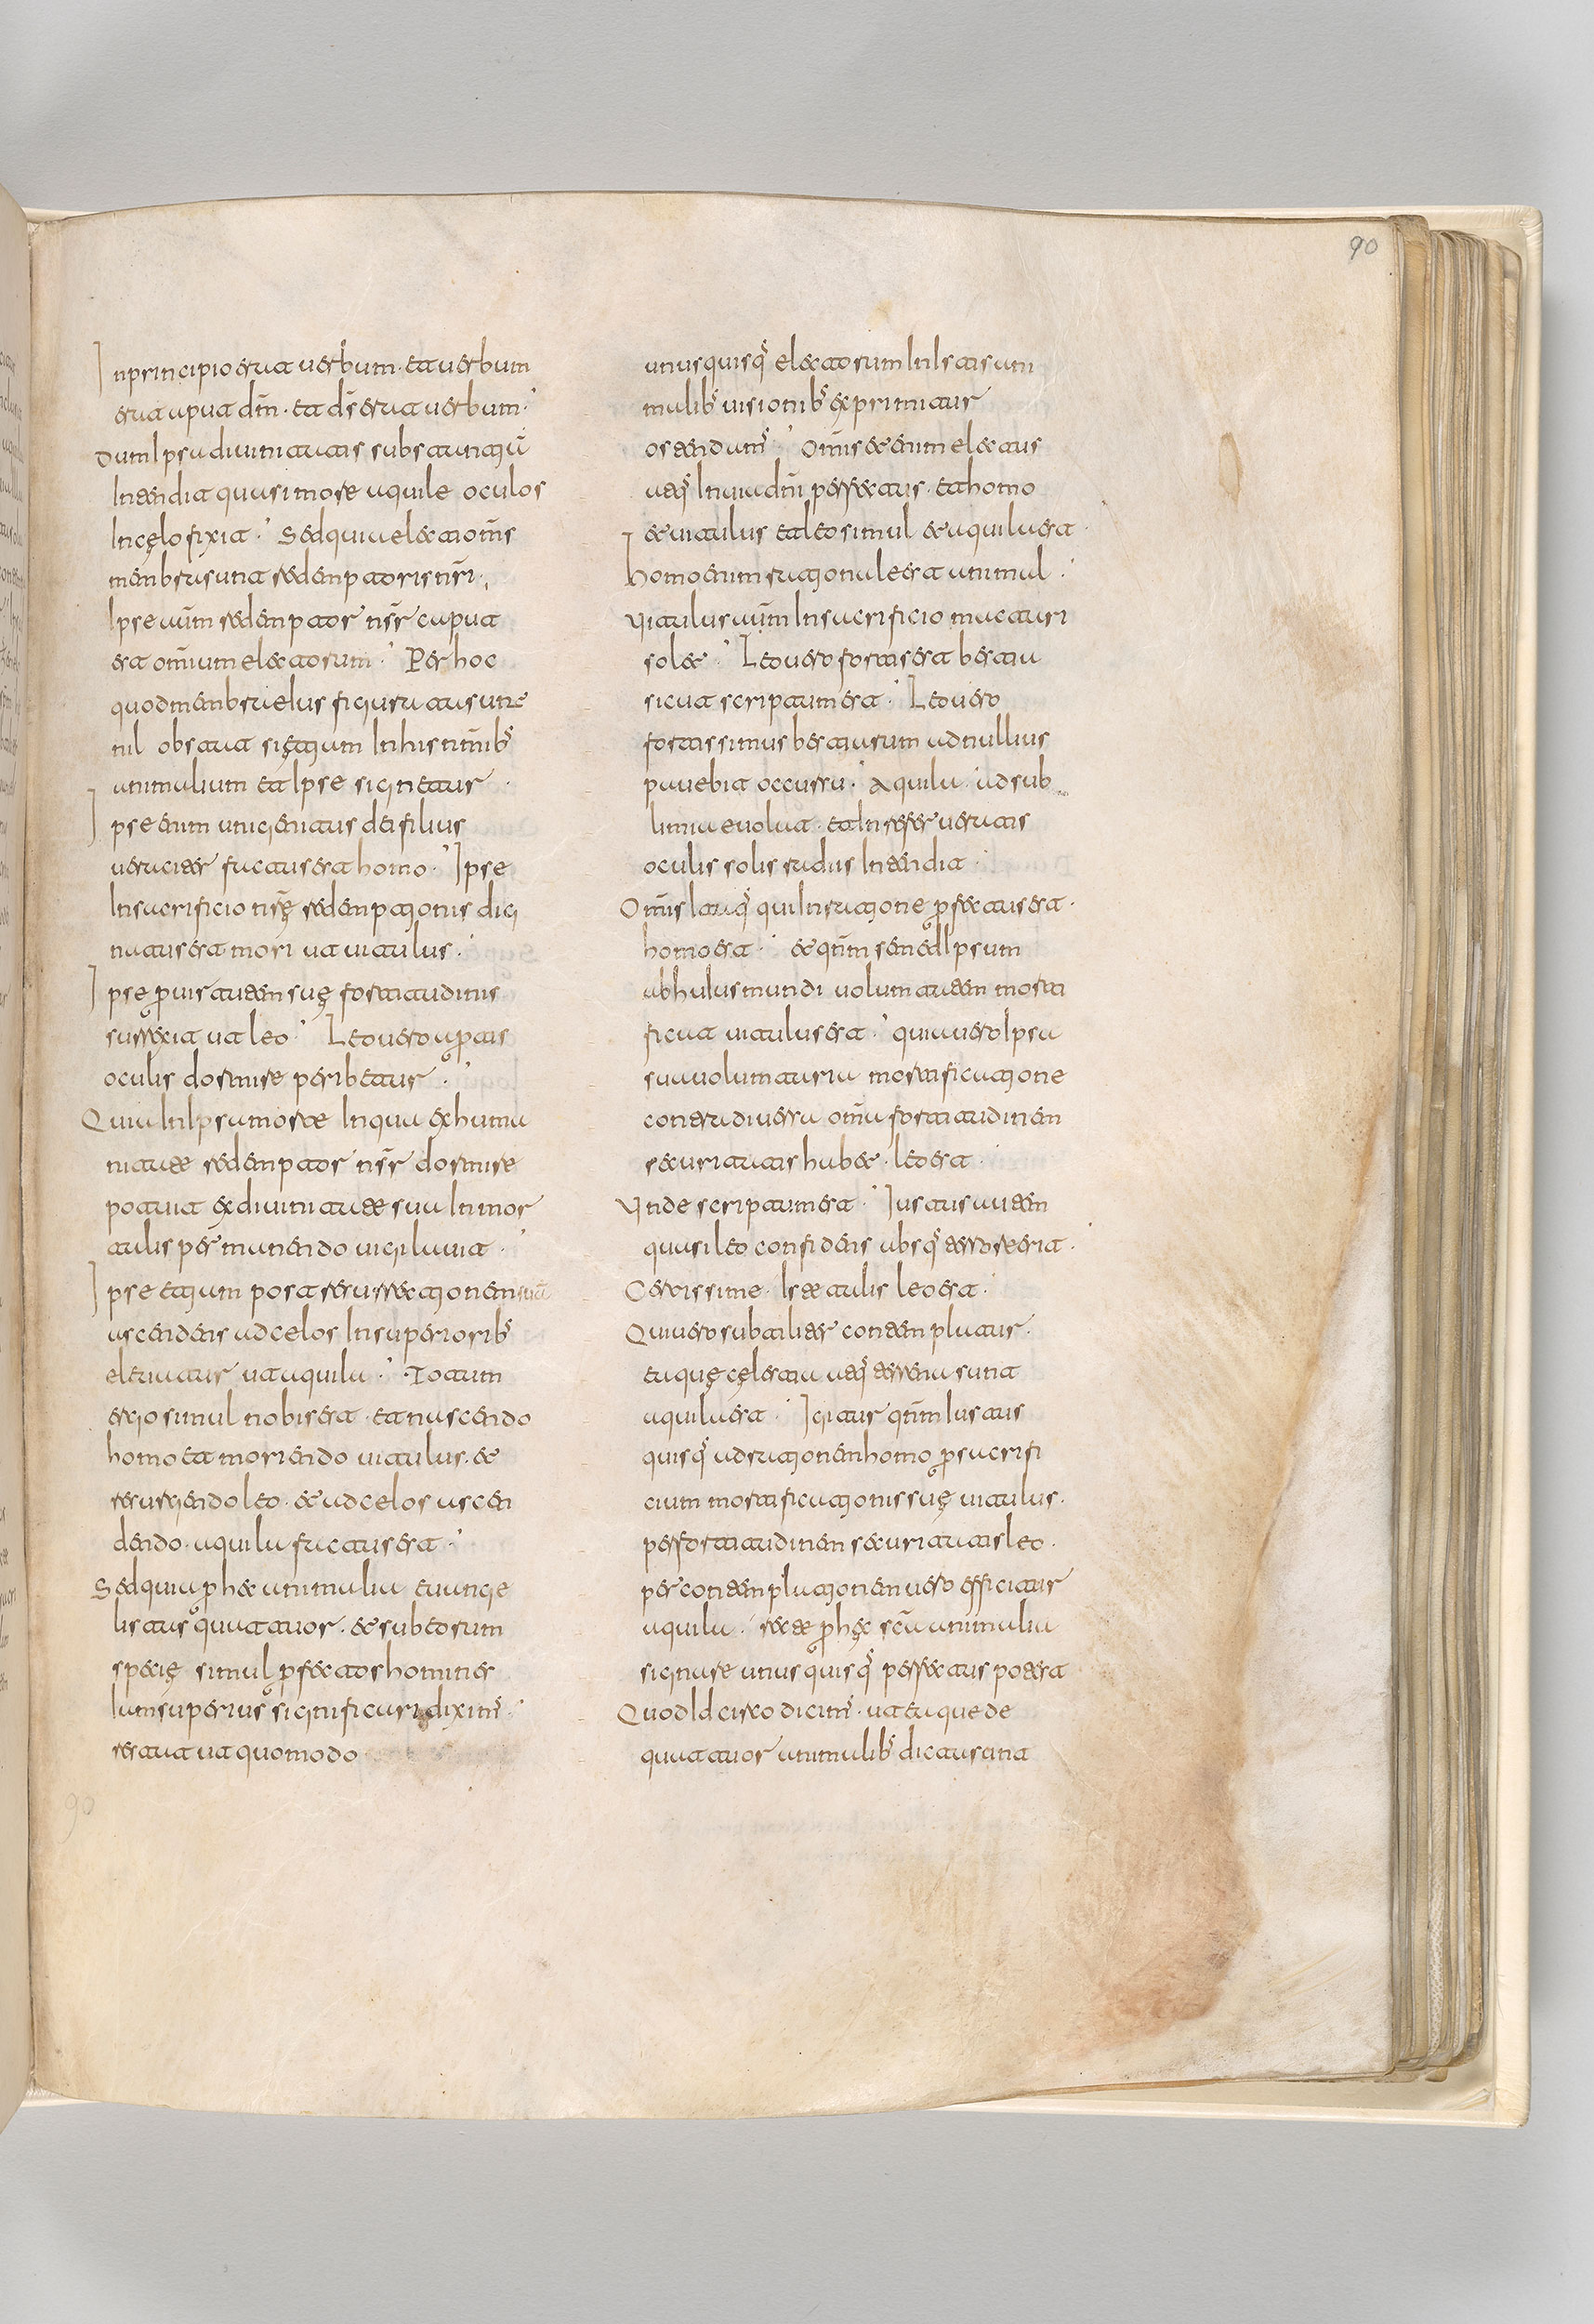 90
Inprincipio erat uerbum· et uerbum
erat aput dm̄· et ds̄ erat uerbum·
dum Ipsa diuinitatis substantiā
Intendit quasi more aquile oculos
In cęlo fixit· Sed quia electi om̄s
menbra sunt redemptoris nr̄i·
Ipse aūm redemptor nsr̄ caput
est om̄ium electorum· Per hoc
quod menbra eius figurati sunt
nil obstat si etium In his om̄ib;
animalium et Ipse signetur·
Ipse enim unigenitus dei filius
ueraciter factus est homo· Ipse
In sacrificio nr̄ę redemptionis dig
natus est mori ut uitulus·
Ipse per uirtutem suę fortitudinis
surrexit ut leo· Leo uero apertis
oculis dormire peribetur·
Quia In Ipsa morte In qua ex huma
nitate redemptor nsr̄ dormire
potuit ex diuinitate sua Inmor
talis permanendo uigilauit·
Ipse etium post resurrectionem suā
ascendens ad celos In superiorib;
eleuatur ut aquila· Totum
ergo simul nobis est· et nascendo
homo et moriendo uitulus· et
resurgendo leo· et ad celos ascen
dendo· aquila factus est·
Sed quia per hec animalia euange
listas quattuor· et sub eorum
specię simul perfectos homines
Iam superius significari diximꝰ·
restat ut quomodo
unusquisq; electorum In Istis ani
malib; uisionib; exprimitur
ostendamꝰ· Om̄is etenim electus
atq; In uia dm̄i perfectus· et homo
et uitulus et leo simul et aquila est·
homo enim rationale est animal·
Uitulus aūm In sacrificio mactari
solet· Leo uero fortis est bestia
sicut scriptum est· Leo uero
fortissimus bestiarum ad nullius
pauebit occursu· Aquila· ad sub
limia euolat· et Inreuerueratis
oculis solis radiis Intendit·
Om̄is Itaq; qui In ratione perfectus est·
homo est· et qm̄ semed Ipsum
ab hulus mundi uolumtatem morti
ficat uitulus est· quia uero Ipsa
sua uolumtaria mortificatione
contra diuersa om̄ia fortitudinem
securitatis habet· leo est·
Unde scriptum est· Iustus autem
quasi leo confidens absq; terrore erit·
Certissime· Iste talis leo est·
Qui uero subtiliter contemplatur·
ea quę cęlestia atq; eterna sunt
aquila est· Igitur qm̄ Iustus
quisq; ad rationem homo per sacrifi
cium mortificationis suę uitulus·
per fortitudinem securitatis leo·
per contemplationem uero efficitur
aquila· recte per hęc sc̄a animalia
signare unus quisq; perfectus potest
Quod Id circo dicimꝰ· ut ea que de
quattuor animalib; dicta sunt
90